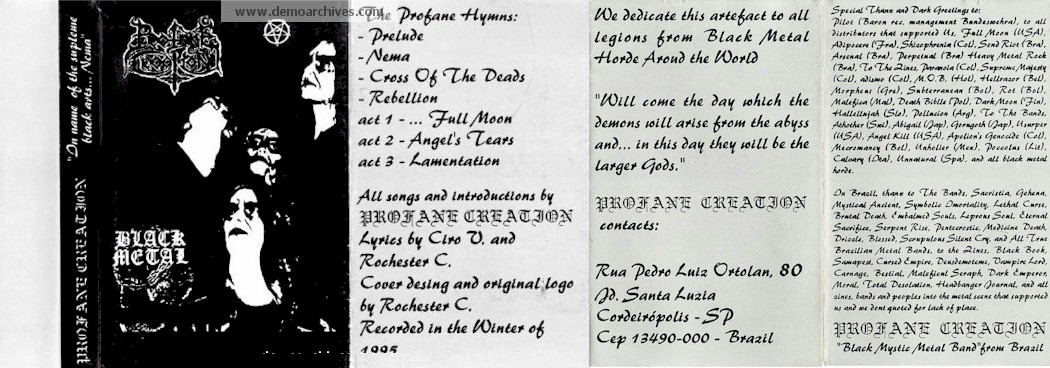 www.demoarchives.com
"In name of the supleme
black arts... Nema"
PROFANE CREATION
BLACK
METAL
The Profane Hymns:
- Prelude
- Nema
- Cross Of The Deads
- Rebellion
act 1 - ... Full Moon
act 2 - Angel's Tears
act 3 - Lamentation
All songs and introductions by
PROFANE CREATION
Lyrics by Ciro V. and
Rochester C.
Cover desing and original logo
by Rochester C.
Recorded in the Winter of
1995
We dedicate this artefact to all
legions from Black Metal
Horde Aroud the World
"Will come the day which the
demons will arise from the abyss
and... in this day they will be the
larger Gods."
PROFANE CREATION
contacts:
Rua Pedro Luiz Ortolan, 80
Jd. Santa Luzia
Cordeirópolis - SP
Cep 13490-000 - Brazil
Special Thanx and Dark Greetings to:
Pilot (Baron rec. management Bundeswehra), to all
distributors that supported Us, Full Moon (USA),
Adipocere (Fra), Shizophrenia (Col), Send Riot (Bra),
Arsenal (Bra), Perpetual (Bra) Heavy Metal Rock
(Bra), To The Zines, Paranoia (Col), Supreme Majesty
(Col), adismo (Col), M.O.B. (Hol), Hellrazor (Bel),
Morpheus (Gre), Subterranean (Bol), Rot (Bol),
Malefica (Mal), Death Bible (Pol), Dark Moon (Fin),
Hallellujah (Slo), Pollucion (Arg), To The Bands,
Athother (Swi), Abigail (Jap), Gorugoth (Jap), Usurper
(USA), Angel Kill (USA), Apolion's Genocide (Col),
Mecromancy (Bol), Unholier (Mex), Poccolus (Lit),
Calvary (Ita), Unnatural (Spa), and all black metal
horde.
In Brazil, thanx to The Bands, Sacristia, Gehena,
Mystical Ancient, Symbolic Imortality, Lethal Curse,
Brutal Death, Embalmed Souls, Leprous Soul, Eternal
Sacrifice, Serpent Rise, Pentecrostic, Medicine Death,
Drizzle, Blessed, Scrupulous Silent Cry, and All True
Brazilian Metal Bands, to the Zines, Black Book,
Samapest, Cursed Empire, Deusdemoteme, Vampire Lord,
Carnage, Bestial, Maleficul Seraph, Dark Emperor,
Moral, Total Desolation, Headbanger Journal, and all
zines, bands and peoples into the metal scene that supported
us and we dont quoted for lack of place.
PROFANE CREATION
"Black Mystic Metal Band" from Brazil